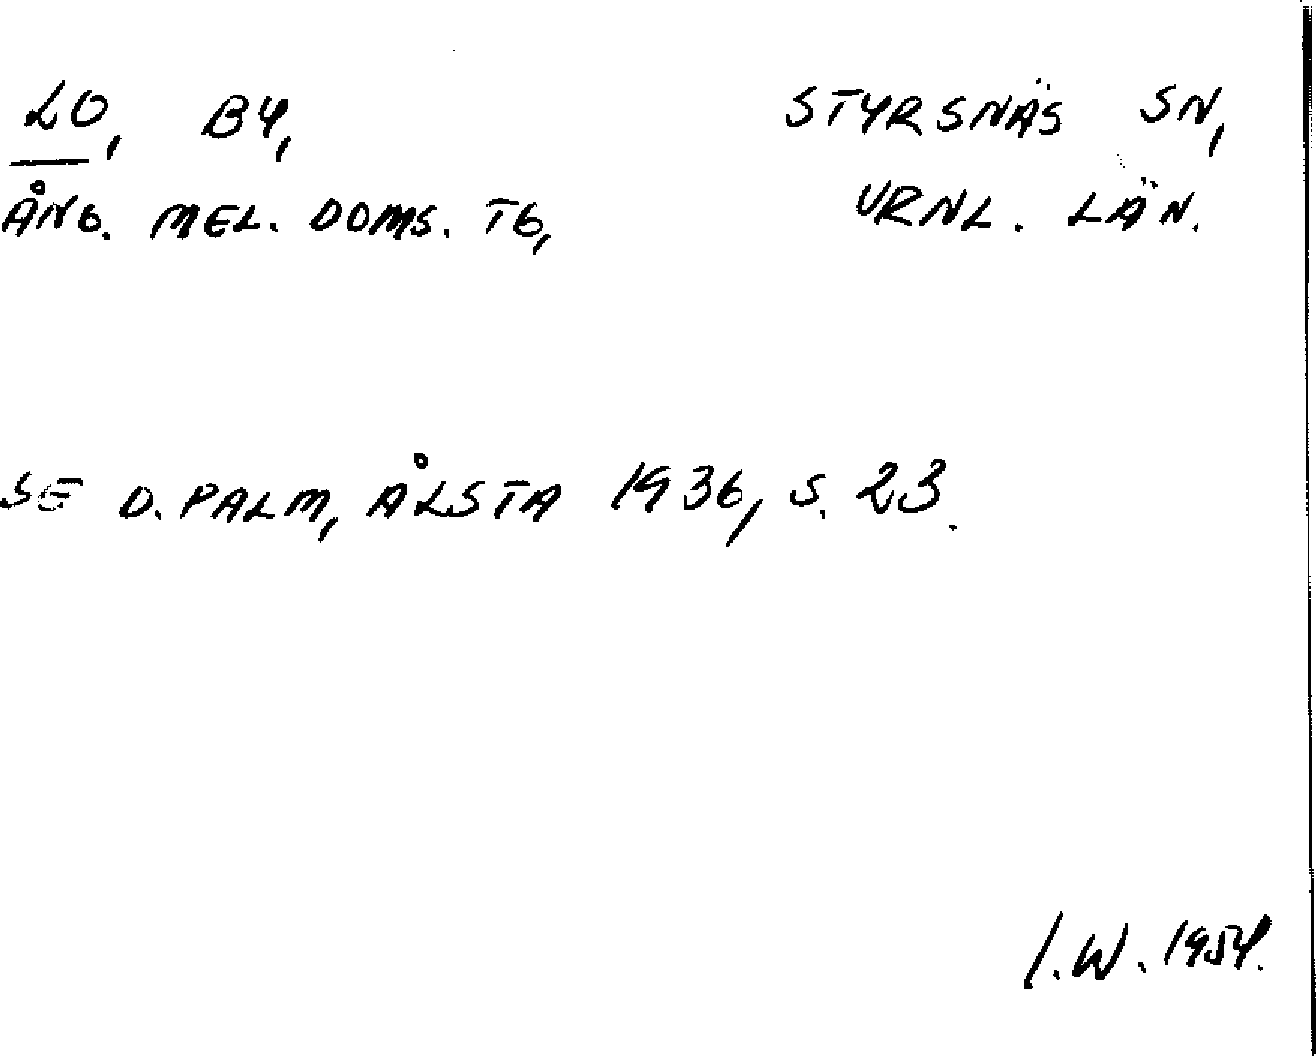 LO, BY, STYRSNÄS SN,
ÅNG. MEL. DOMS. TG, VRNL. LÄN.
SE D. PALM, ÅLSTA 1936, S. 23.
I.W. 1954.